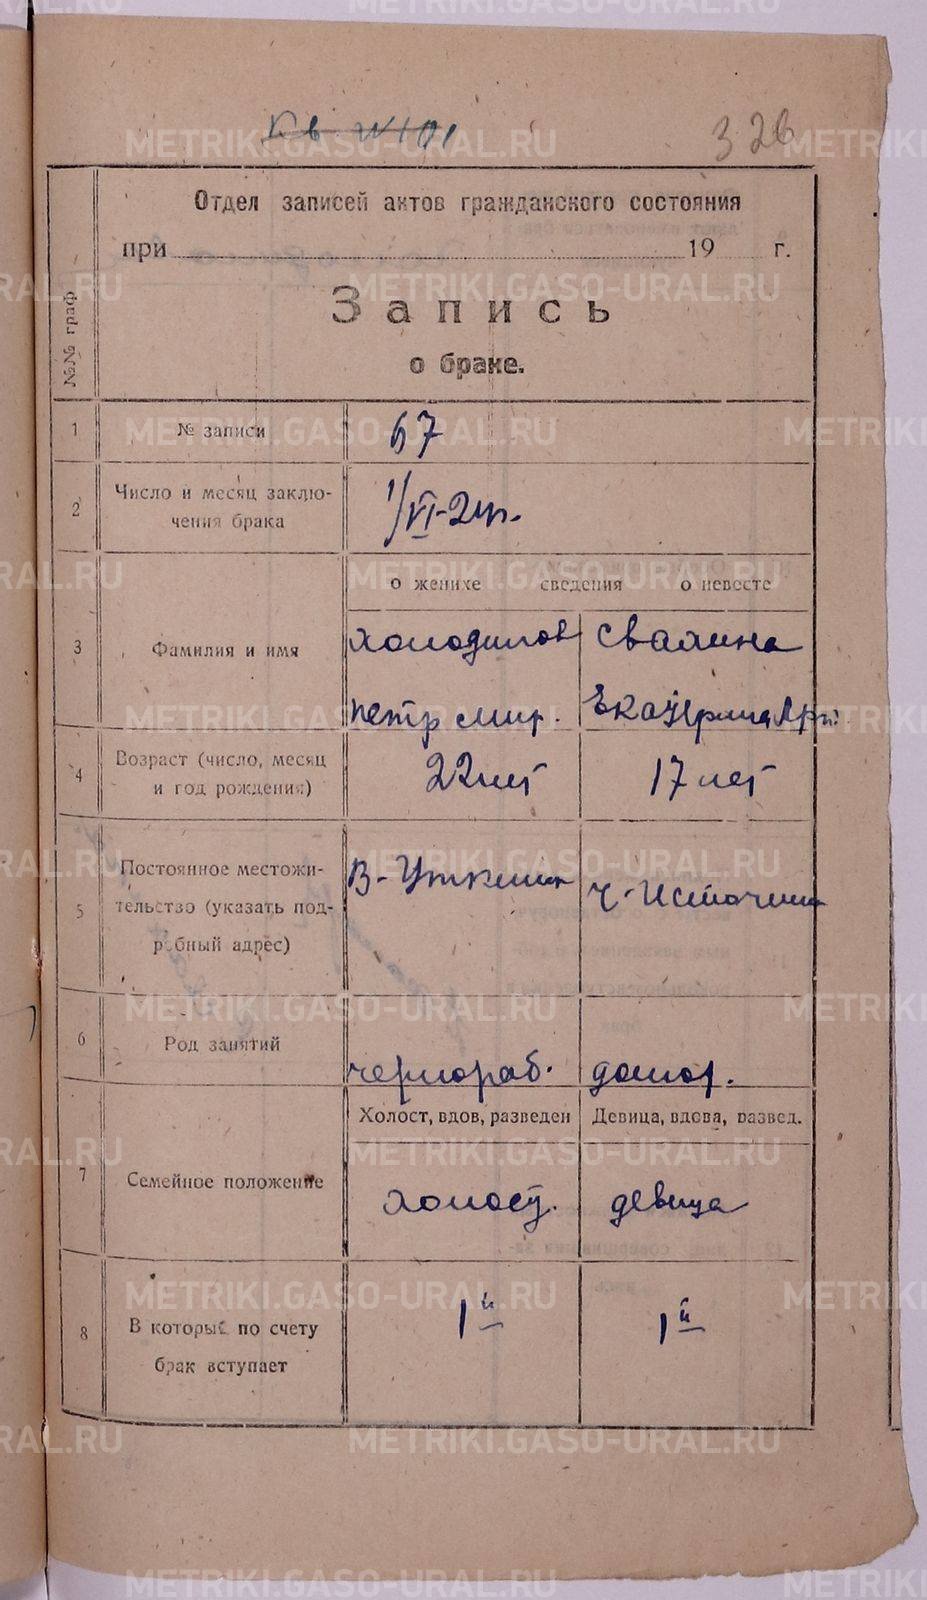 Кв №101
326
Отдел записей актов гражданского состояния
при 19 г.
Запись
о браке.
№№ граф
1 № записи 67
2 Число и месяц заклю-
чения брака 1/VI-24г.
о женихе сведения о невесте
3 Фамилия и имя Холодилов Свалина
Петр Мир. Екатерина
4 Возраст (число, месяц
и год рождения) 22 лет 17 лет
5 Постоянное местожи-
тельство (указать под-
робный адрес) В-Уткинск Ч-Источник
6 Род занятий чернораб. домор.
Холост, вдов, разведен Девица, вдова, развед.
7 Семейное положение холост. девица
8 В который по счету
брак вступает 1й 1й
METRIKI.GASO-URAL.RU